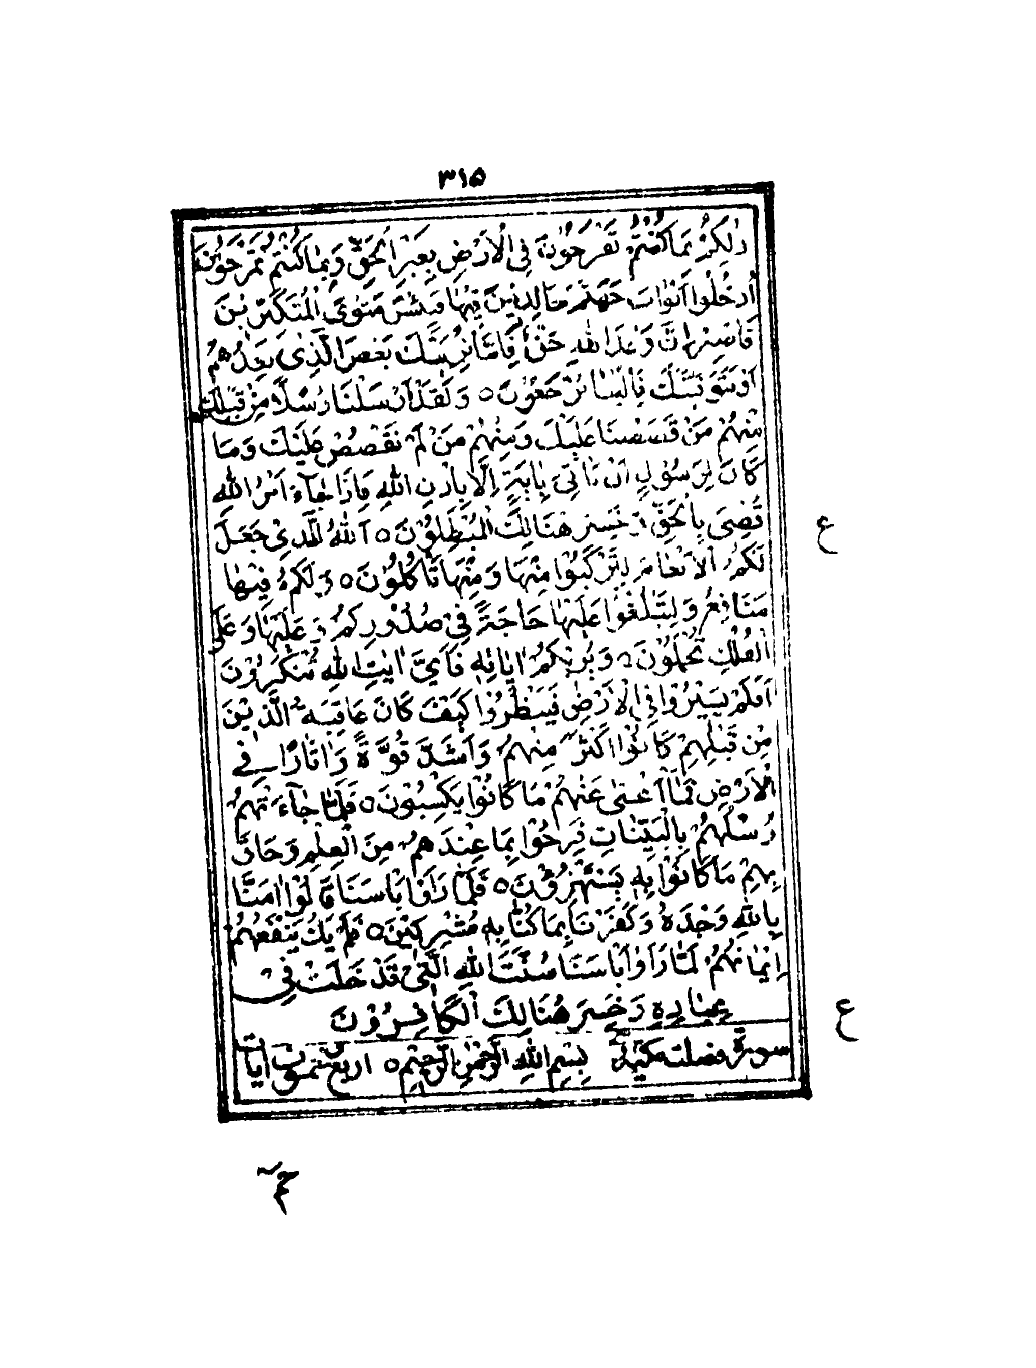 ۳۱۵
ذٰلِكُمْ بِمَا كُنْتُمْ تَفْرَحُوْنَ فِي الْاَرْضِ بِغَيْرِ الْحَقِّ وَبِمَا كُنْتُمْ تَمْرَحُوْنَ
اُدْخُلُوْا اَبْوَابَ جَهَنَّمَ خَالِدِيْنَ فِيْهَا فَبِئْسَ مَثْوَى الْمُتَكَبِّرِيْنَ
فَاصْبِرْ اِنَّ وَعْدَ اللهِ حَقٌّ فَاِمَّا نُرِيَنَّكَ بَعْضَ الَّذِىْ نَعِدُهُمْ
اَوْ نَتَوَفَّيَنَّكَ فَاِلَيْنَا يُرْجَعُوْنَ ○ وَلَقَدْ اَرْسَلْنَا رُسُلًا مِنْ قَبْلِكَ
مِنْهُمْ مَنْ قَصَصْنَا عَلَيْكَ وَمِنْهُمْ مَنْ لَمْ نَقْصُصْ عَلَيْكَ وَمَا
كَانَ لِرَسُوْلٍ اَنْ يَاْتِىَ بِاٰيَةٍ اِلَّا بِاِذْنِ اللهِ فَاِذَا جَآءَ اَمْرُ اللهِ
قُضِىَ بِالْحَقِّ وَخَسِرَ هُنَالِكَ الْمُبْطِلُوْنَ ○ اَللهُ الَّذِىْ جَعَلَ
لَكُمُ الْاَنْعَامَ لِتَرْكَبُوْا مِنْهَا وَمِنْهَا تَاْكُلُوْنَ ○ وَلَكُمْ فِيْهَا
مَنَافِعُ وَلِتَبْلُغُوْا عَلَيْهَا حَاجَةً فِىْ صُدُوْرِكُمْ وَعَلَيْهَا وَعَلَى
الْفُلْكِ تُحْمَلُوْنَ ○ وَيُرِيْكُمْ اٰيَاتِهٖ فَاَىَّ اٰيٰتِ اللهِ تُنْكِرُوْنَ
اَفَلَمْ يَسِيْرُوْا فِى الْاَرْضِ فَيَنْظُرُوْا كَيْفَ كَانَ عَاقِبَةُ الَّذِيْنَ
مِنْ قَبْلِهِمْ كَانُوْا اَكْثَرَ مِنْهُمْ وَاَشَدَّ قُوَّةً وَاٰثَارًا فِى
الْاَرْضِ فَمَآ اَغْنٰى عَنْهُمْ مَا كَانُوْا يَكْسِبُوْنَ ○ فَلَمَّا جَآءَتْهُمْ
رُسُلُهُمْ بِالْبَيِّنَاتِ فَرِحُوْا بِمَا عِنْدَهُمْ مِنَ الْعِلْمِ وَحَاقَ
بِهِمْ مَا كَانُوْا بِهٖ يَسْتَهْزِءُوْنَ ○ فَلَمَّا رَاَوْا بَاْسَنَا قَالُوْا اٰمَنَّا
بِاللهِ وَحْدَهٗ وَكَفَرْنَا بِمَا كُنَّا بِهٖ مُشْرِكِيْنَ ○ فَلَمْ يَكُ يَنْفَعُهُمْ
اِيْمَانُهُمْ لَمَّا رَاَوْا بَاْسَنَا سُنَّتَ اللهِ الَّتِىْ قَدْ خَلَتْ فِىْ
عِبَادِهٖ وَخَسِرَ هُنَالِكَ الْكَافِرُوْنَ
سورة فصلت مكية بِسْمِ اللهِ الرَّحْمٰنِ الرَّحِيْمِ ○ اربع خمسون ايات
ع
ع